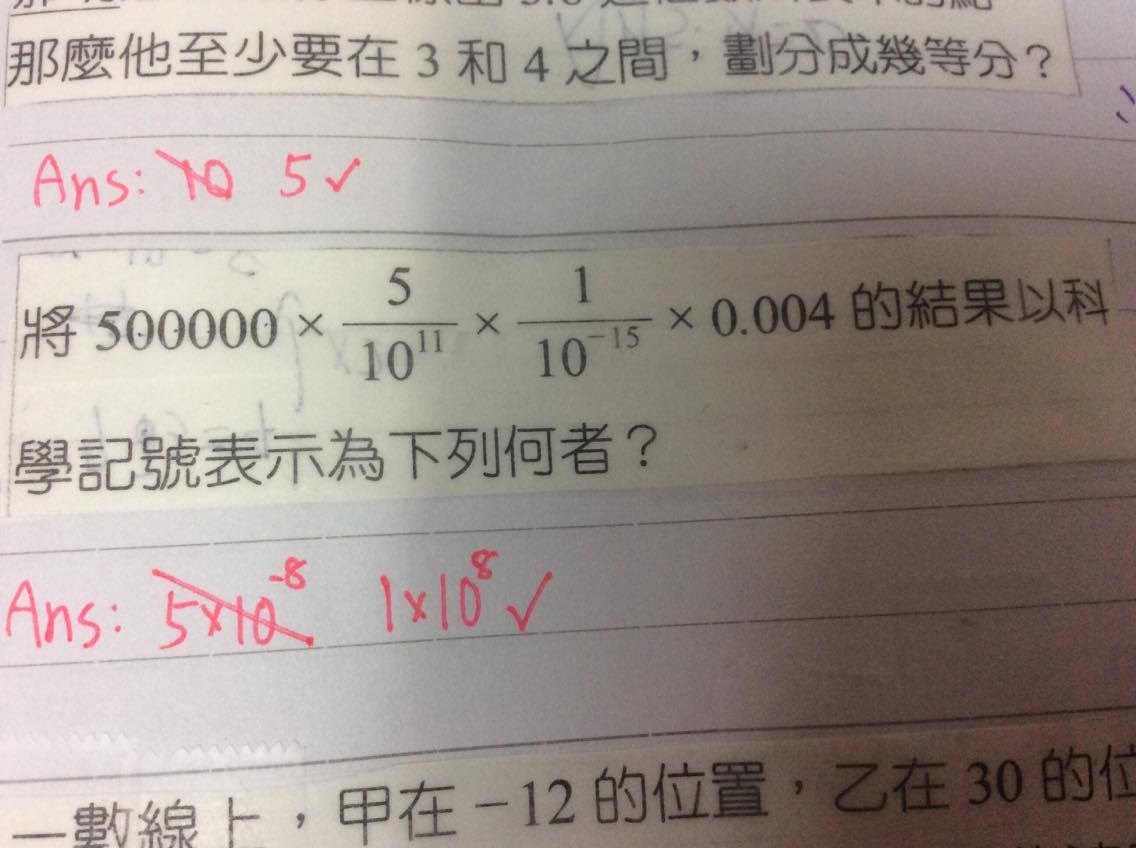 那麼他至少要在 3 和 4 之間，劃分成幾等分？
Ans: 10 5 ✓
將 500000 × 5/10^11 × 1/10^-15 × 0.004 的結果以科
學記號表示為下列何者？
Ans: 5×10^-8 1×10^8 ✓
一數線上，甲在 −12 的位置，乙在 30 的位